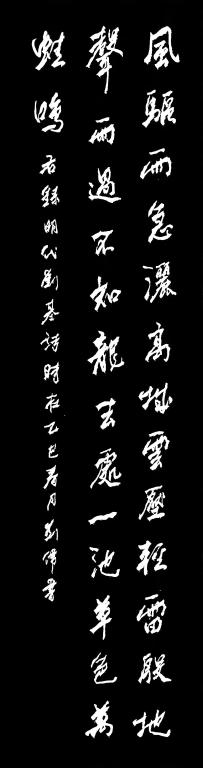 風驅雨急灑高城雲壓輕雷殷地
聲雨過不知龍去處一池草色萬
蛙鳴 右錄明代劉基詩時在乙巳春月劉偉書